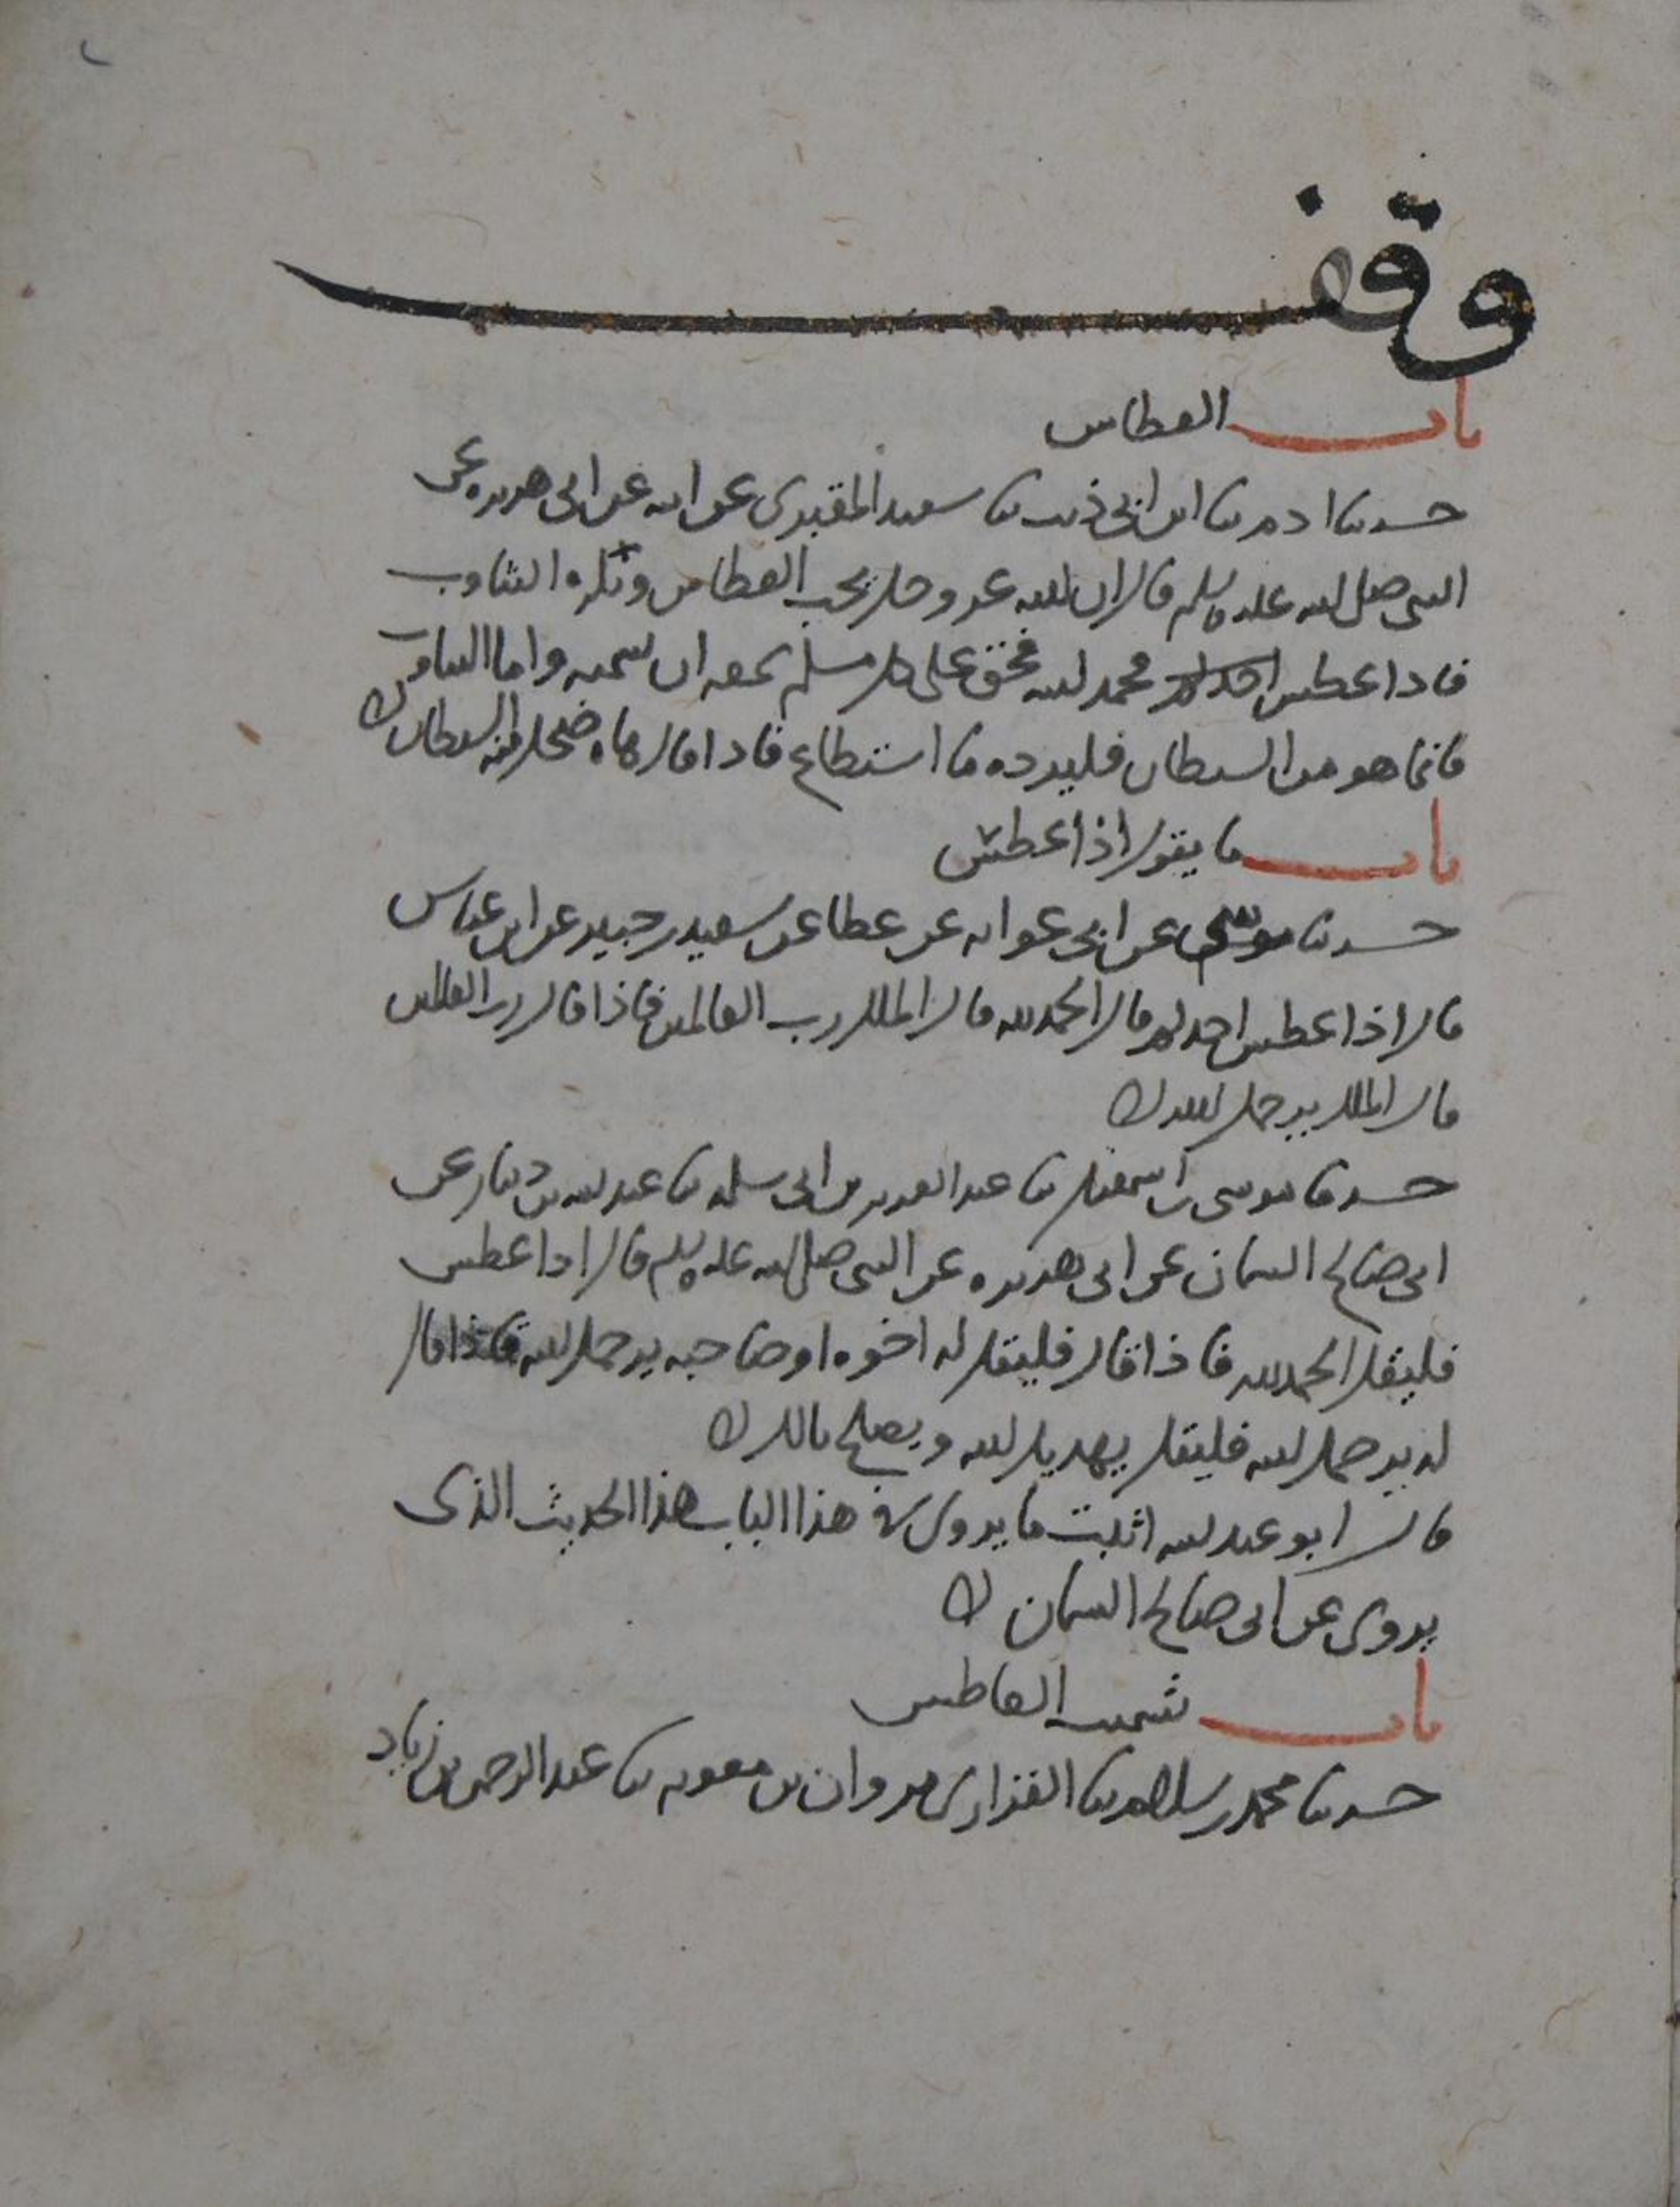 ٢
وقف
باب العطاس
حدثنا ادم بنا ابن ابي ذيب بنا سعيد المقبري عن ابيه عن ابي هريره عن
النبي صلى الله عليه وسلم قال ان الله عز وجل يحب العطاس ويكره التثاوب
فاذا عطس احدكم فحمد الله فحق على كل مسلم سمعه ان يشمته واما التثاوب
فانما هو من الشيطان فليرده ما استطاع فاذا قال هاه ضحك منه الشيطان
باب ما يقول اذا عطس
حدثنا موسى عن ابي عوانه عن عطا عن سعيد بن جبير عن ابن عباس
قال اذا عطس احدكم قال الحمد لله قال الملك رب العالمين فاذا قال رب العالمين
قال الملك يرحمك الله
حدثنا موسى بن اسمعيل بنا عبد العزيز بن ابي سلمه بنا عبد الله بن دينار عن
ابي صالح السمان عن ابي هريره عن النبي صلى الله عليه وسلم قال اذا عطس
فليقل الحمد لله فاذا قال فليقل له اخوه او صاحبه يرحمك الله فاذا قال
له يرحمك الله فليقل يهديك الله ويصلح بالك
قال ابو عبد الله اثبت ما يروى في هذا الباب هذا الحديث الذي
يروى عن ابي صالح السمان
باب تشميت العاطس
حدثنا محمد بن سلام بنا الفزاري مروان بن معويه بنا عبد الرحمن بن زياد